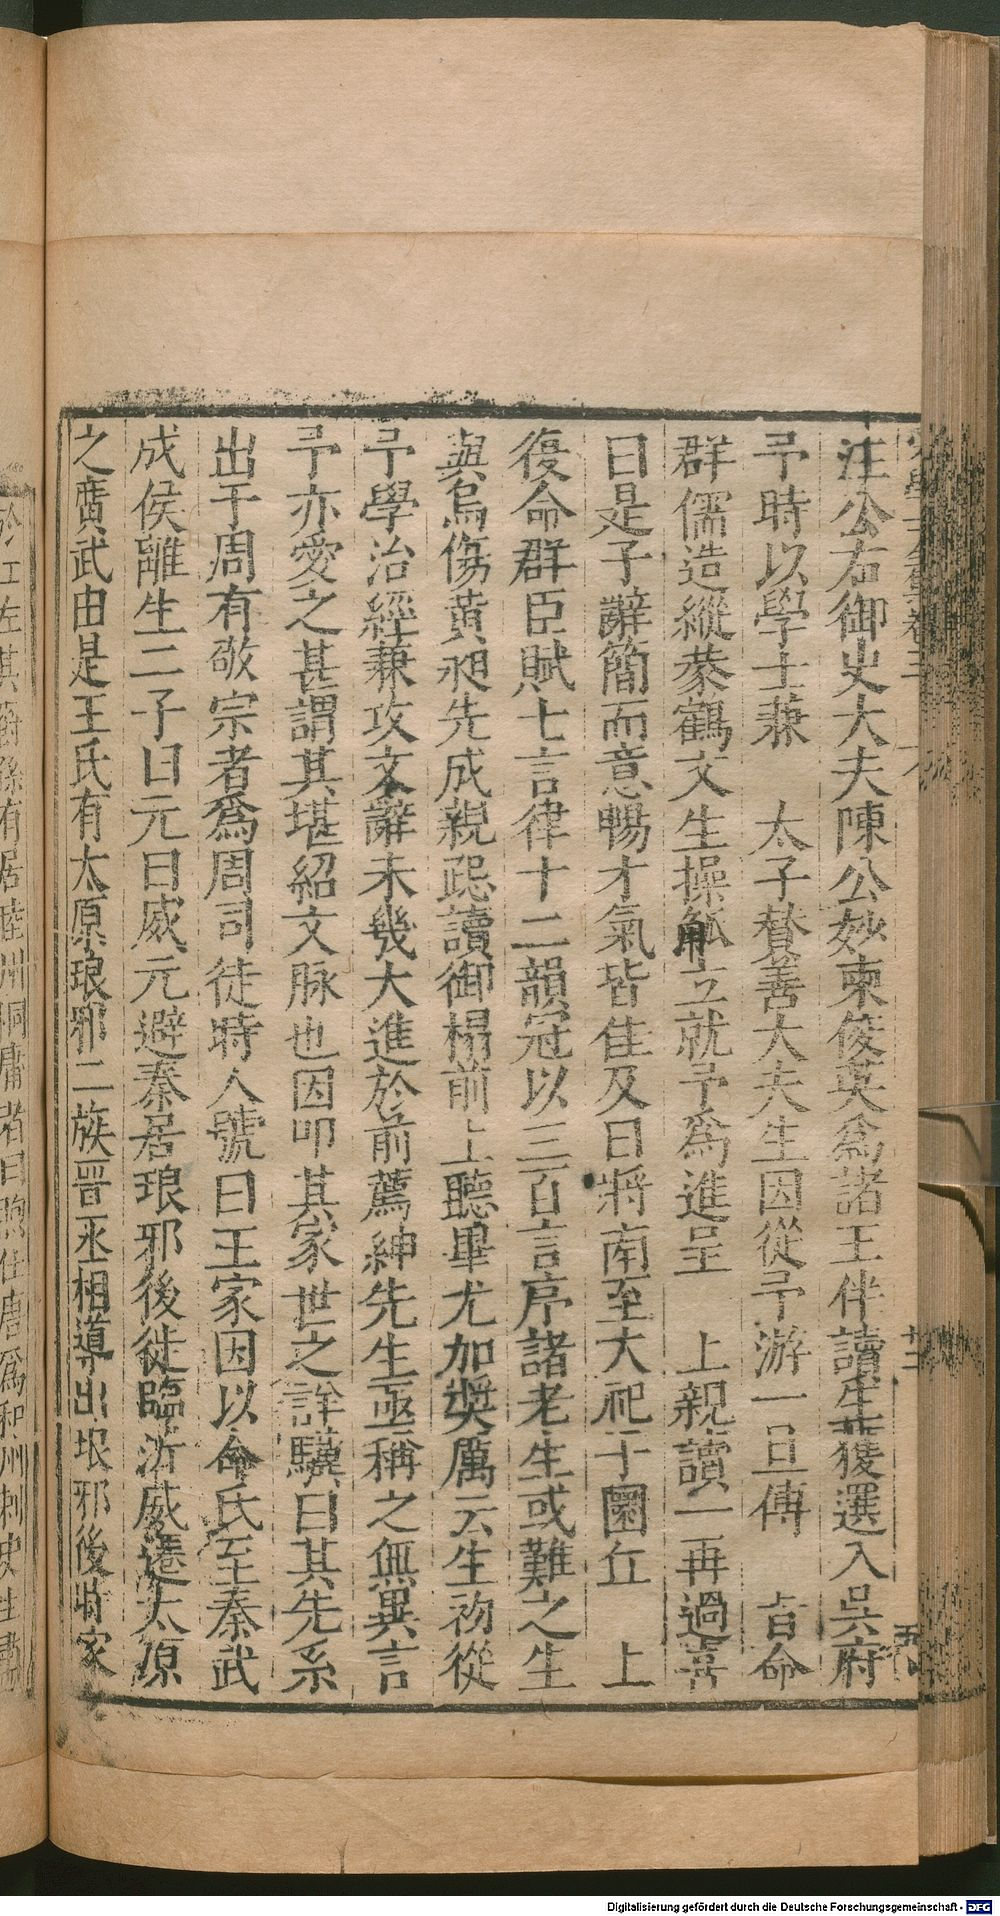 汪公右御史大夫陳公妙柬俊英爲諸王伴讀生獲選入吳府
予時以學士兼　太子賛善大夫生因從予游一旦傳　旨命
群儒造縱㳟鶴文生操觚立就予爲進呈　上親讀一再過喜
曰是子辭簡而意暢才氣皆佳及日將南至大祀于圜丘　上
復命群臣賦七言律十二韻冠以三百言序諸老生或難之生
與烏傷黄昶先成親跽讀御榻前上聽畢尤加奬厲云生初從
予學治經兼攻文辭未幾大進於前薦紳先生亟稱之無異言
予亦愛之甚謂其堪紹文脉也因叩其家世之詳驥曰其先系
出于周有敬宗者爲周司徒時人號曰王家因以命氏至秦武
成侯離生二子曰元曰威元避秦居琅邪後徙臨沂威遷太原
之廣武由是王氏有太原琅邪二族晋丞相導出琅邪後將家
於江左其裔孫有居睦州桐廬者曰煦仕唐爲和州刺史生
十二
五
Digitalisierung gefördert durch die Deutsche Forschungsgemeinschaft - DFG